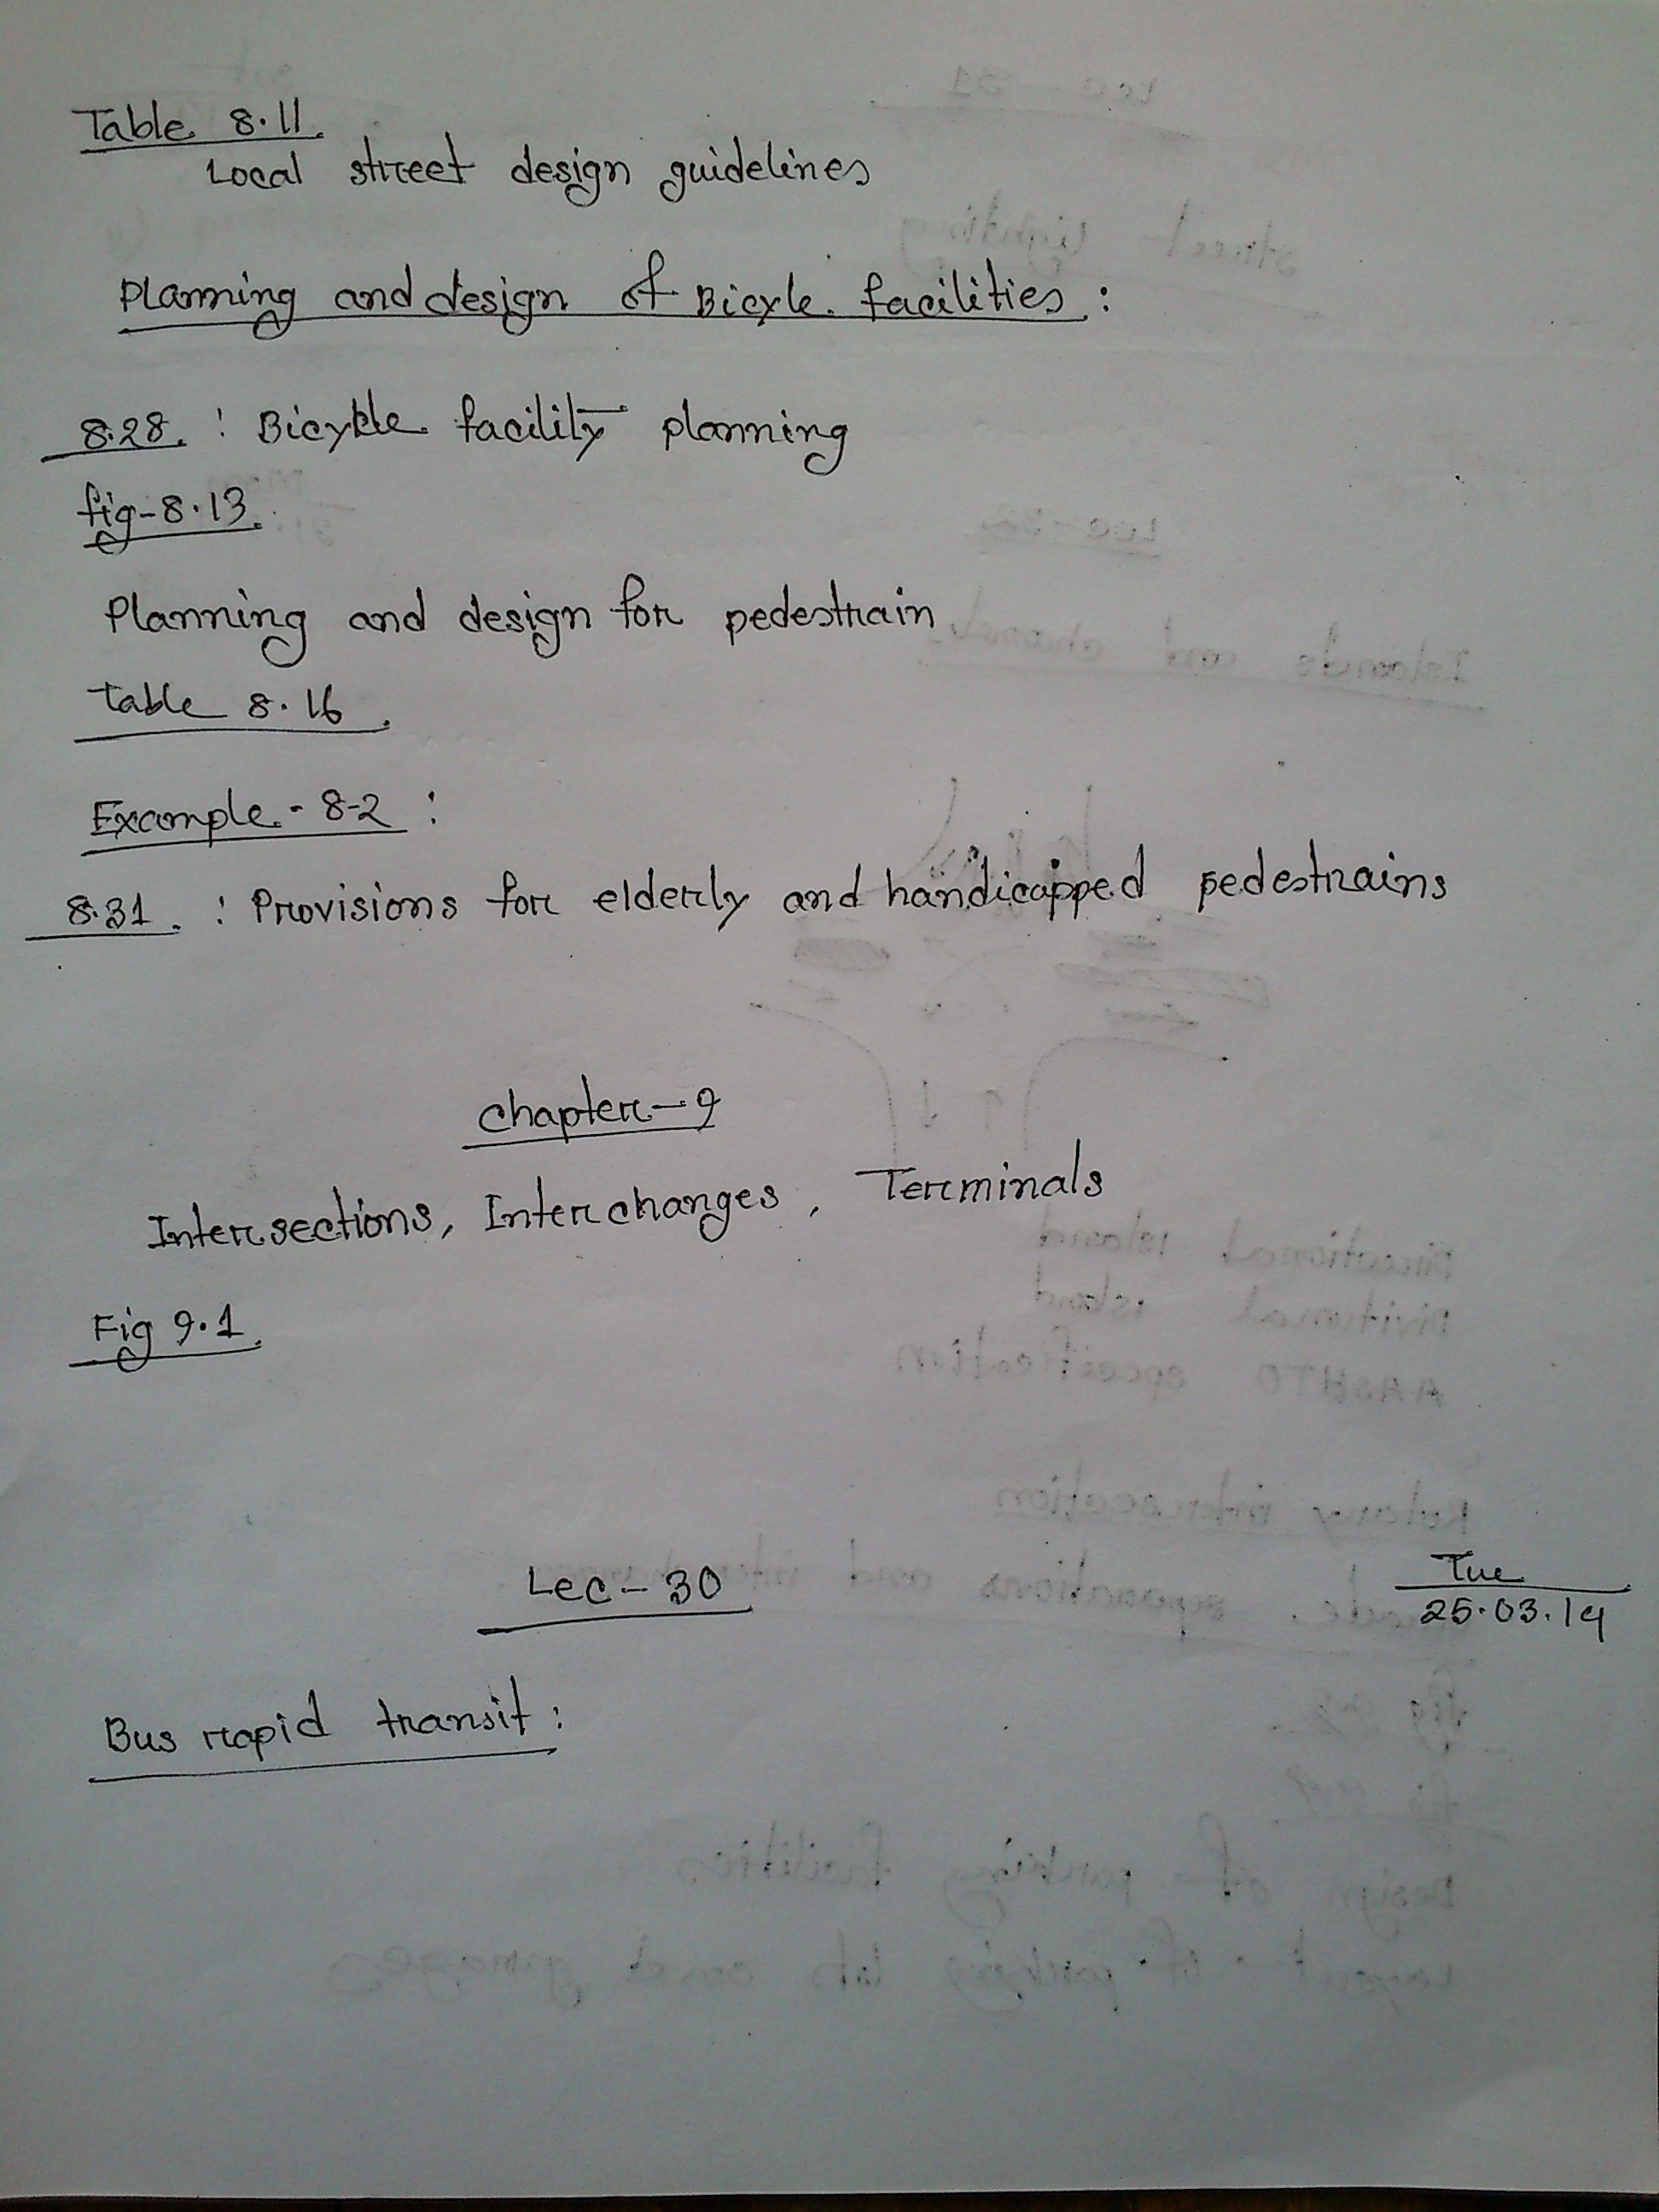 Table 8.11.
Local street design guidelines
Planning and design of Bicyle facilities :
8.28. : Bicykle facility planning
fig-8.13.
Planning and design for pedestrain
table 8.16.
Example - 8-2 :
8.31. : Provisions for elderly and handicapped pedestrains
chapter-9
Intersections, Interchanges, Terminals
Fig 9.1.
Lec - 30
Tue
25.03.14
Bus rapid transit :